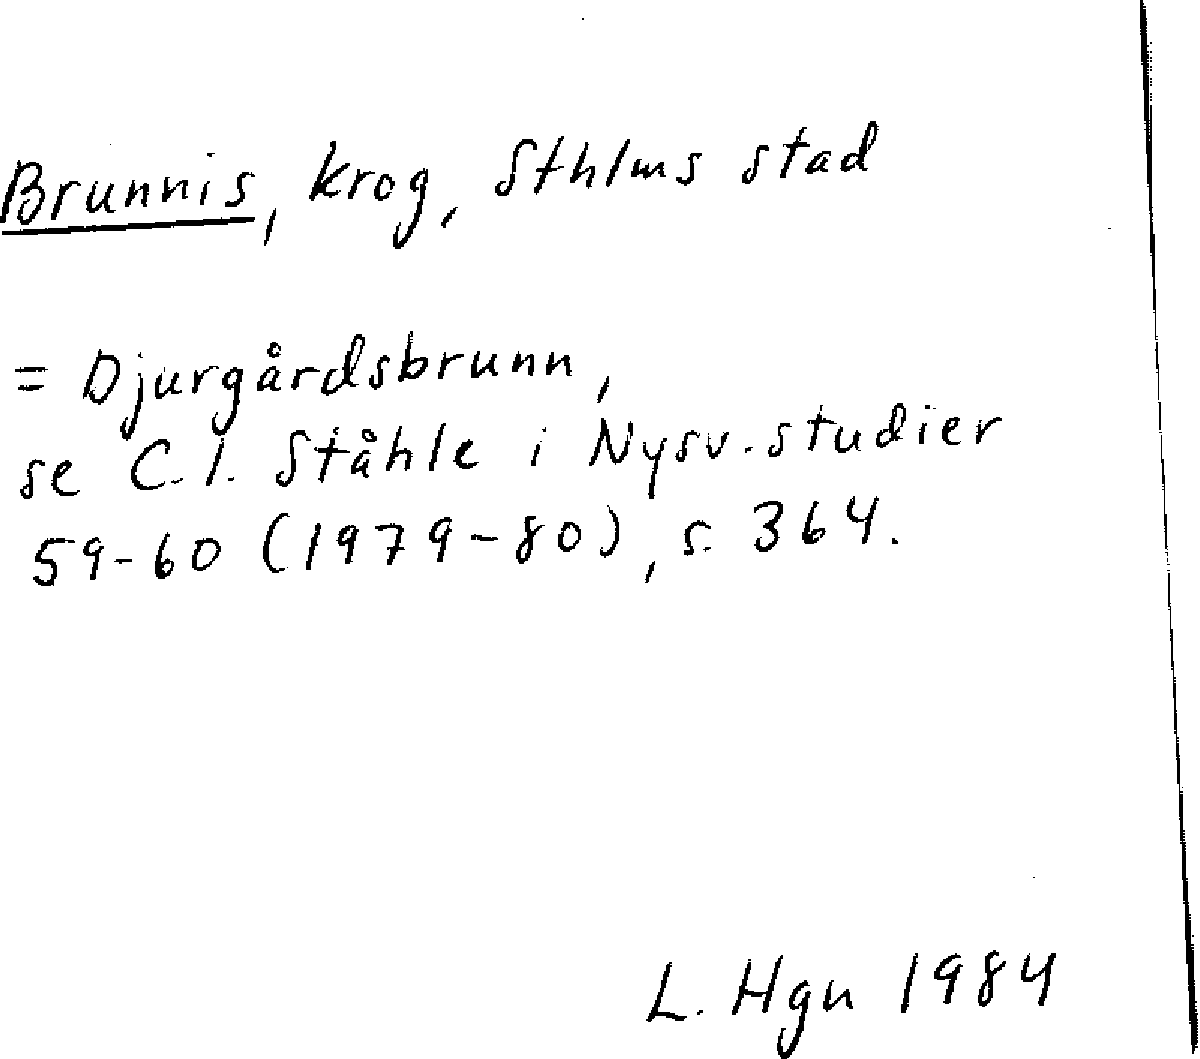 Brunnis, krog, Sthlms stad
= Djurgårdsbrunn,
se C.I. Ståhle i Nysv. studier
59-60 (1979-80), s. 364.
L. Hgn 1984